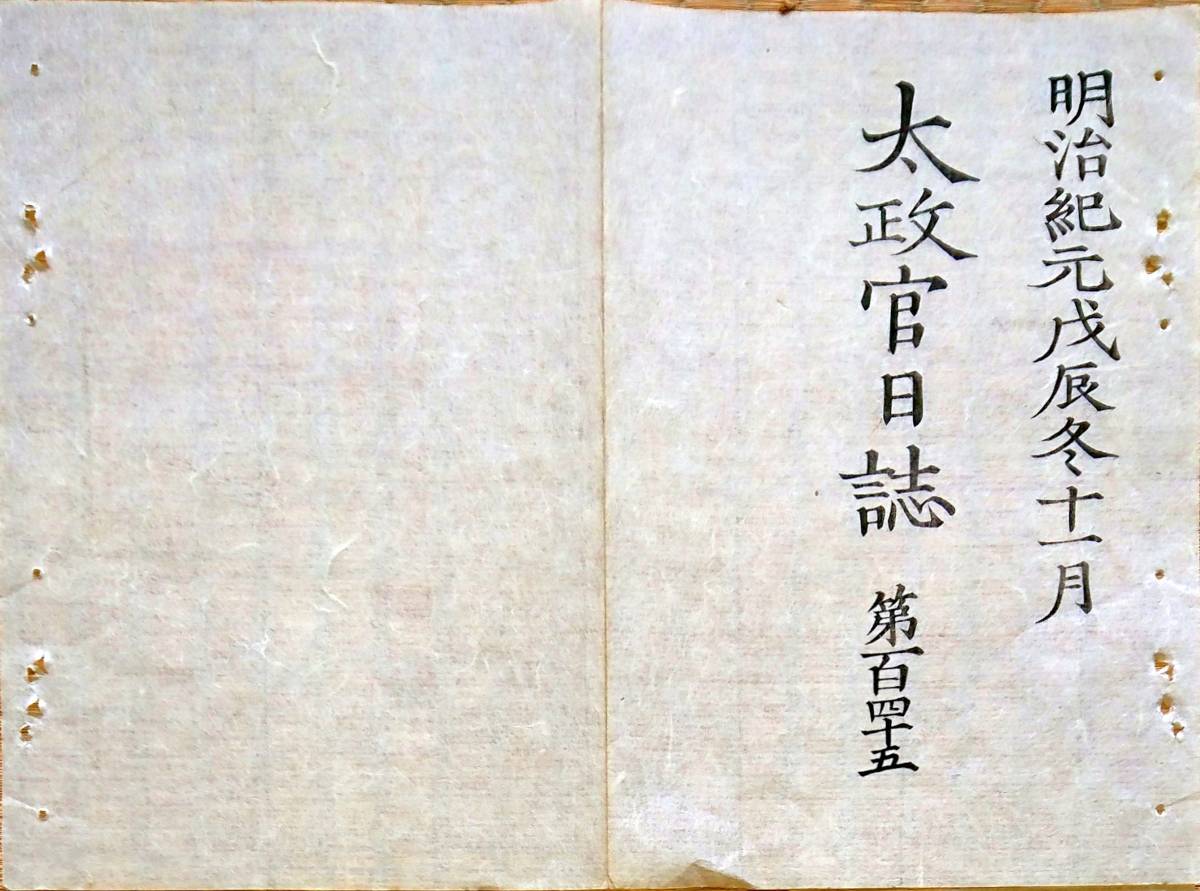 明治紀元戊辰冬十一月
太政官日誌 第百四十五